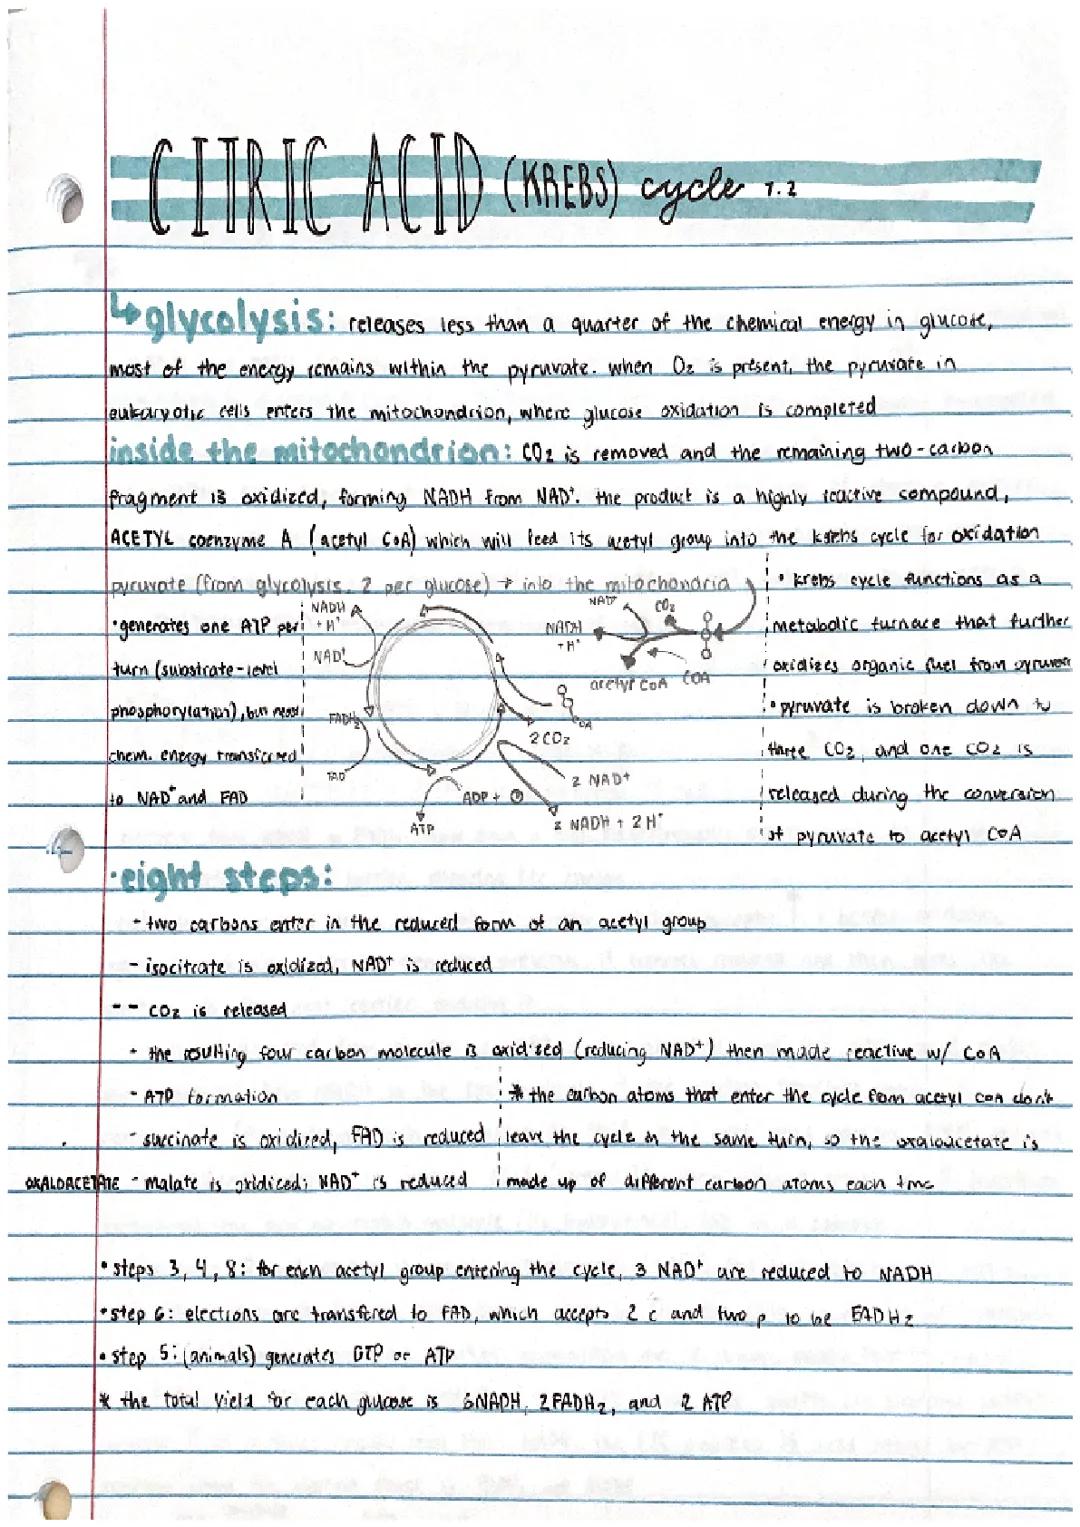 CITRIC ACID (KREBS) cycle 7.2
↳glycolysis: releases less than a quarter of the chemical energy in glucose,
most of the energy remains within the pyruvate. when O₂ is present, the pyruvate in
eukaryotic cells enters the mitochondrion, where glucose oxidation is completed
inside the mitochondrion: CO₂ is removed and the remaining two-carbon
fragment is oxidized, forming NADH from NAD⁺. the product is a highly reactive compound,
ACETYL coenzyme A (acetyl CoA) which will feed its acetyl group into the krebs cycle for oxidation
pyruvate (from glycolysis, 2 per glucose) → into the mitochondria
•generates one ATP per
turn (substrate-level
phosphorylation), but most
chem. energy transferred
to NAD⁺ and FAD
NADH
+ H⁺
NAD⁺
FADH₂
FAD
ATP
ADP + Ⓟ
NAD⁺
CO₂
NADH
+H⁺
acetyl CoA
COA
COA
2 CO₂
2 NAD⁺
2 NADH + 2 H⁺
• krebs cycle functions as a
metabolic furnace that further
oxidizes organic fuel from pyruvate
• pyruvate is broken down to
three CO₂, and one CO₂ is
released during the conversion
of pyruvate to acetyl CoA
•eight steps:
- two carbons enter in the reduced form of an acetyl group
- isocitrate is oxidized, NAD⁺ is reduced
-- CO₂ is released
- the resulting four carbon molecule is oxidised (reducing NAD⁺) then made reactive w/ CoA
- ATP formation
- succinate is oxidized, FAD is reduced
OXALOACETATE - malate is oxidiced; NAD⁺ is reduced
* the carbon atoms that enter the cycle from acetyl coA don't
leave the cycle in the same turn, so the oxaloacetate is
made up of different carbon atoms each time
• steps 3, 4, 8: for each acetyl group entering the cycle, 3 NAD⁺ are reduced to NADH
• step 6: elections are transfered to FAD, which accepts 2 e and two p to be FADH₂
• step 5: (animals) generates GTP or ATP
* the total yield for each glucose is 6NADH, 2FADH₂, and 2 ATP